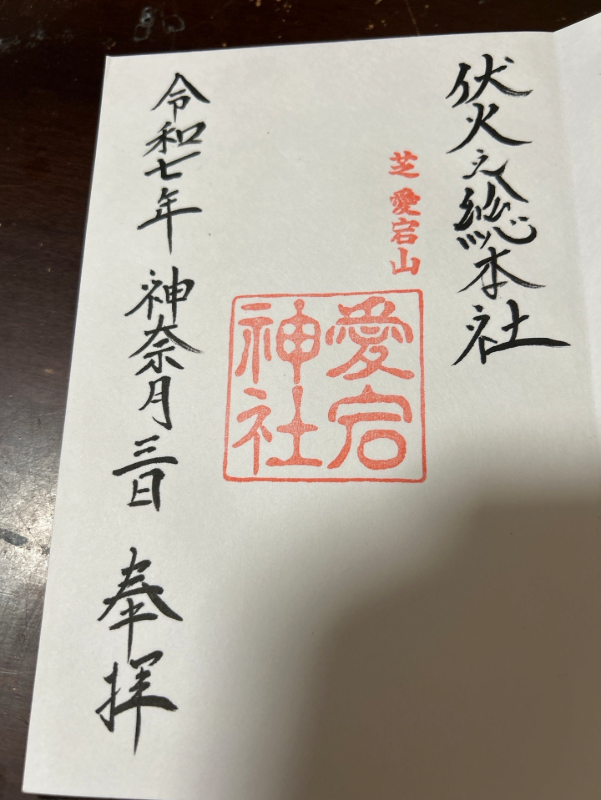 伏火之総本社
芝 愛宕山
愛宕
神社
令和七年 神奈月 三日 奉拝